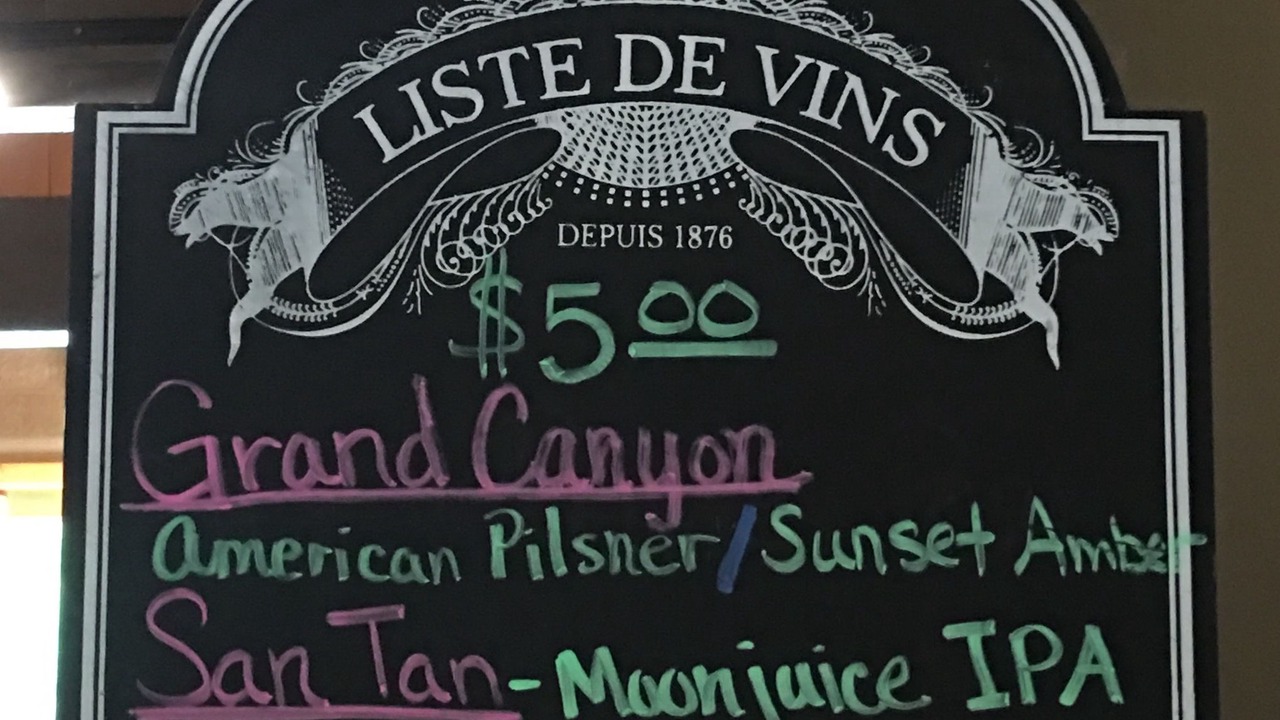 LISTE DE VINS
DEPUIS 1876
$5.00
Grand Canyon
American Pilsner/Sunset Amber
San Tan-Moonjuice IPA